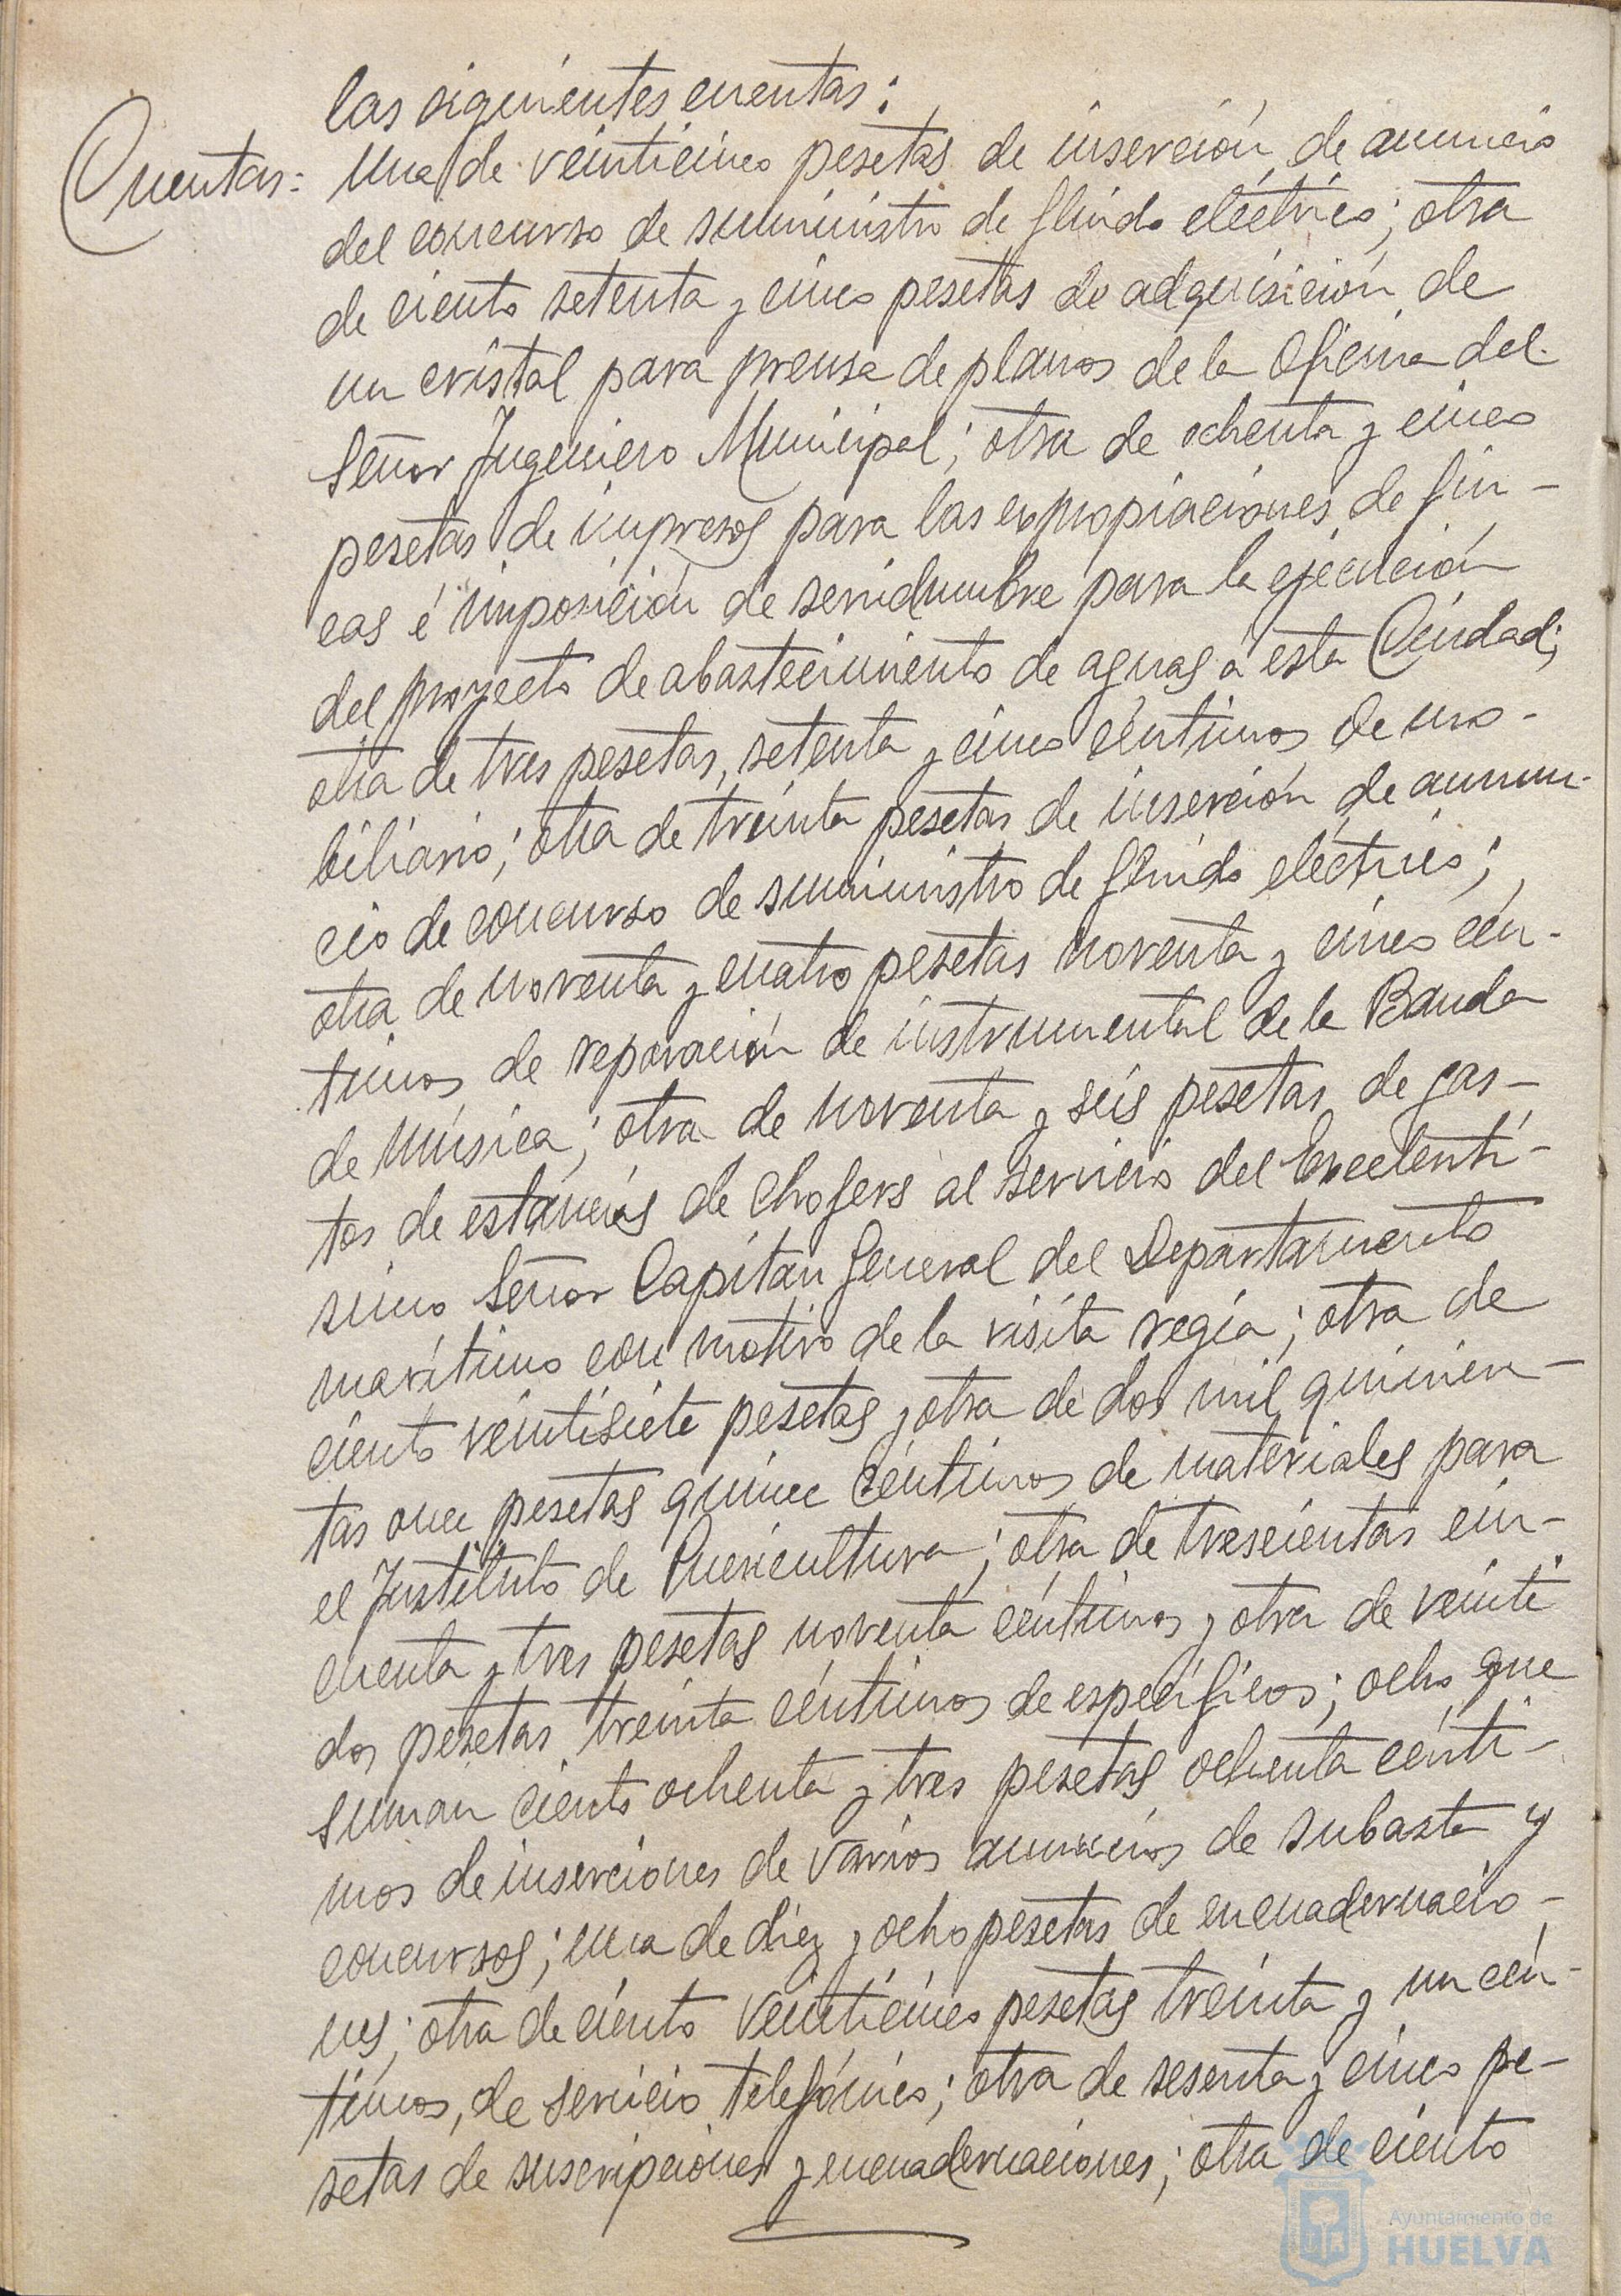 las siguientes cuentas:
Cuentas: Una de veinticinco pesetas de inserción de anuncio
del concurso de suministro de fluido eléctrico; otra
de ciento setenta y cinco pesetas de adquisición de
un cristal para prensa de planos de la Oficina del
Señor Ingeniero Municipal; otra de ochenta y cinco
pesetas de impresos para las expropiaciones de fin-
cas é imposición de servidumbre para la ejecución
del proyecto de abastecimiento de aguas á esta Ciudad;
otra de tres pesetas, setenta y cinco céntimos de mo-
biliario; otra de treinta pesetas de inserción de anun-
cio de concurso de suministro de fluido eléctrico;
otra de noventa y cuatro pesetas noventa y cinco cén-
timos de reparación de instrumental de la Banda
de música; otra de noventa y seis pesetas de gas-
tos de estancias de chofers al servicio del Excelentí-
simo Señor Capitán General del Departamento
marítimo con motivo de la visita regia; otra de
ciento veintisiete pesetas y otra de dos mil quinien-
tas once pesetas quince céntimos de materiales para
el Instituto de Puericultura; otra de trescientas cin-
cuenta y tres pesetas noventa céntimos y otra de veinti
dos pesetas treinta céntimos de específicos; ocho que
suman ciento ochenta y tres pesetas ochenta cénti-
mos de inserciones de varios anuncios de subasta y
concursos; una de diez y ocho pesetas de encuadernacio-
nes; otra de ciento veinticinco pesetas treinta y un cén-
timos, de servicio telefónico; otra de sesenta y cinco pe-
setas de suscripciones y encuadernaciones; otra de ciento
Ayuntamiento de
HUELVA